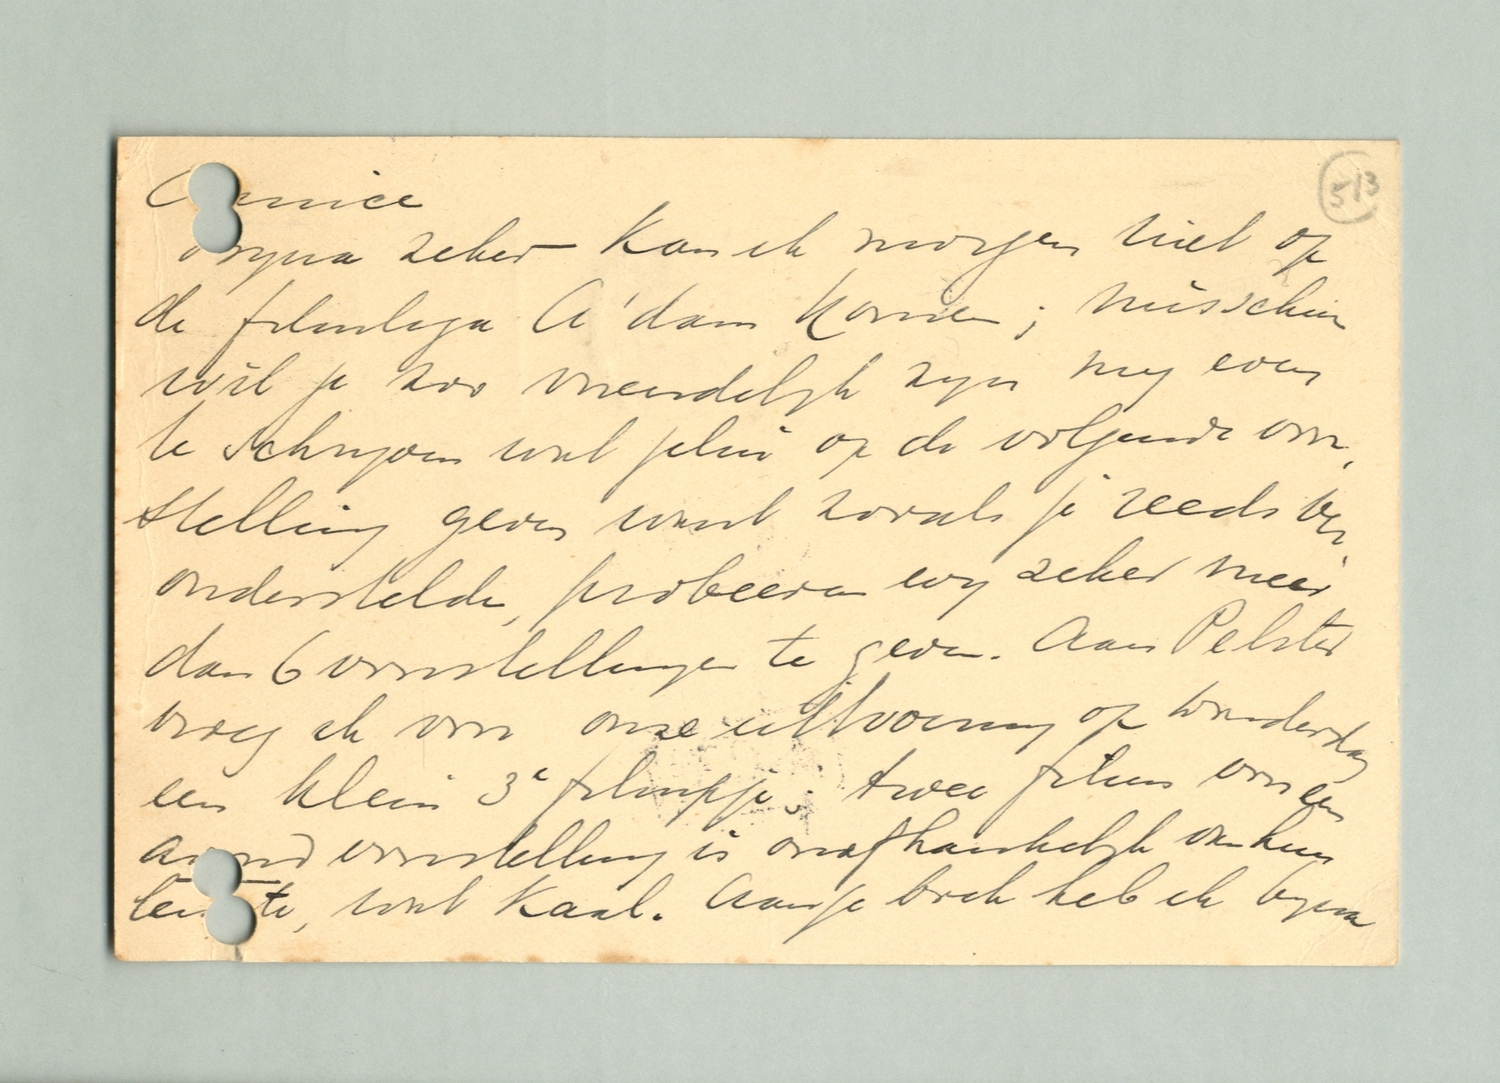 513
Amice
Bijna zeker kan ik morgen niet op
de filmliga A'dam komen; misschien
wil je zoo vriendelijk zijn mij even
te schrijven wat jelui op de volgende voor-
stelling geven want zooals je reeds ver
onderstelde, probeeren wij zeker meer
dan 6 voorstellingen te geven. Aan Pelster
vroeg ik voor onze uitvoering op donderdag
een klein 3e filmpje: twee films voor een
avond voorstelling is onafhankelijk van hun
lengte, wat kaal. Aan je boek heb ik bijna